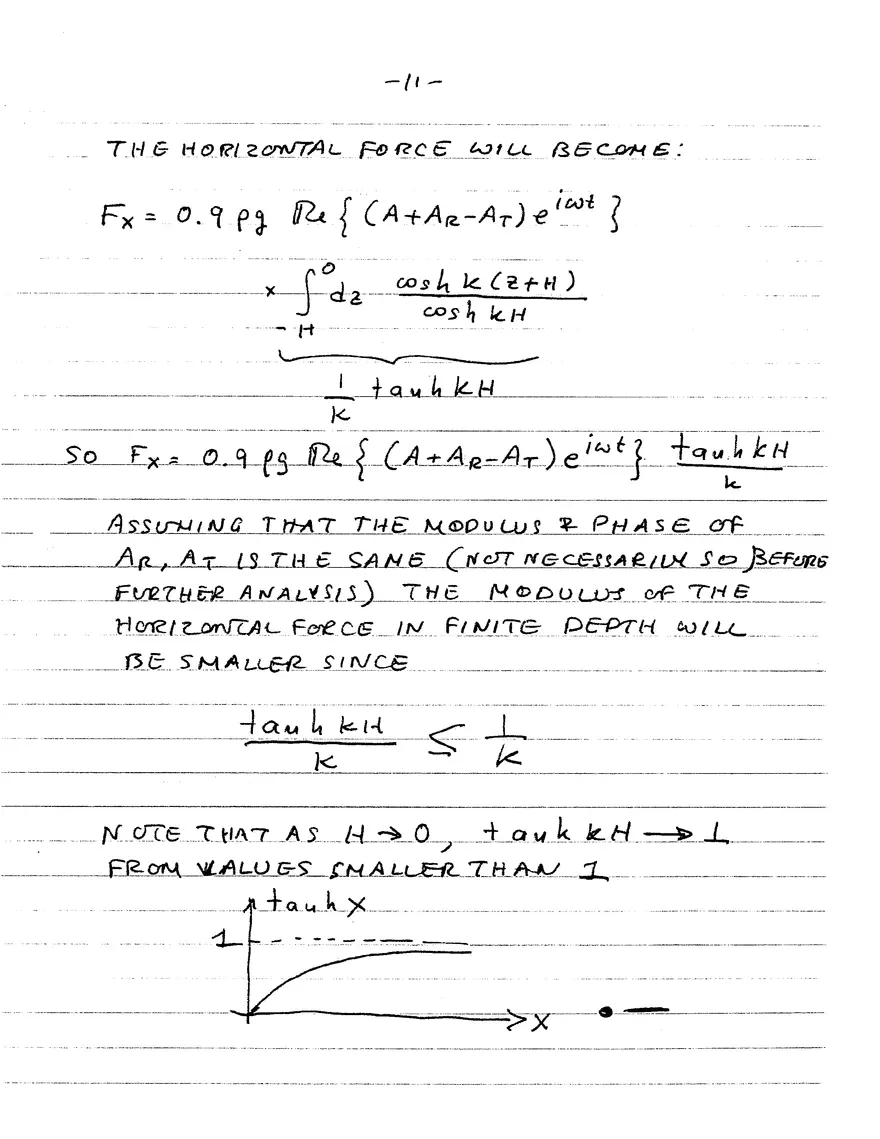 -11-
THE HORIZONTAL FORCE WILL BECOME:
Fx = 0.9 ρg Re { (A+A_R-A_T) e^{iωt} }
× ∫_{-H}^{0} dz cosh k(z+H) / cosh kH
1/k tanh kH
SO Fx = 0.9 ρg Re { (A+A_R-A_T) e^{iωt} } tanh kH / k
ASSUMING THAT THE MODULUS & PHASE OF
A_R, A_T IS THE SAME (NOT NECESSARILY SO BEFORE
FURTHER ANALYSIS) THE MODULUS OF THE
HORIZONTAL FORCE IN FINITE DEPTH WILL
BE SMALLER SINCE
tanh kH / k ≤ 1/k
NOTE THAT AS H → 0, tanh kH → 1
FROM VALUES SMALLER THAN 1
tanh x
1
x